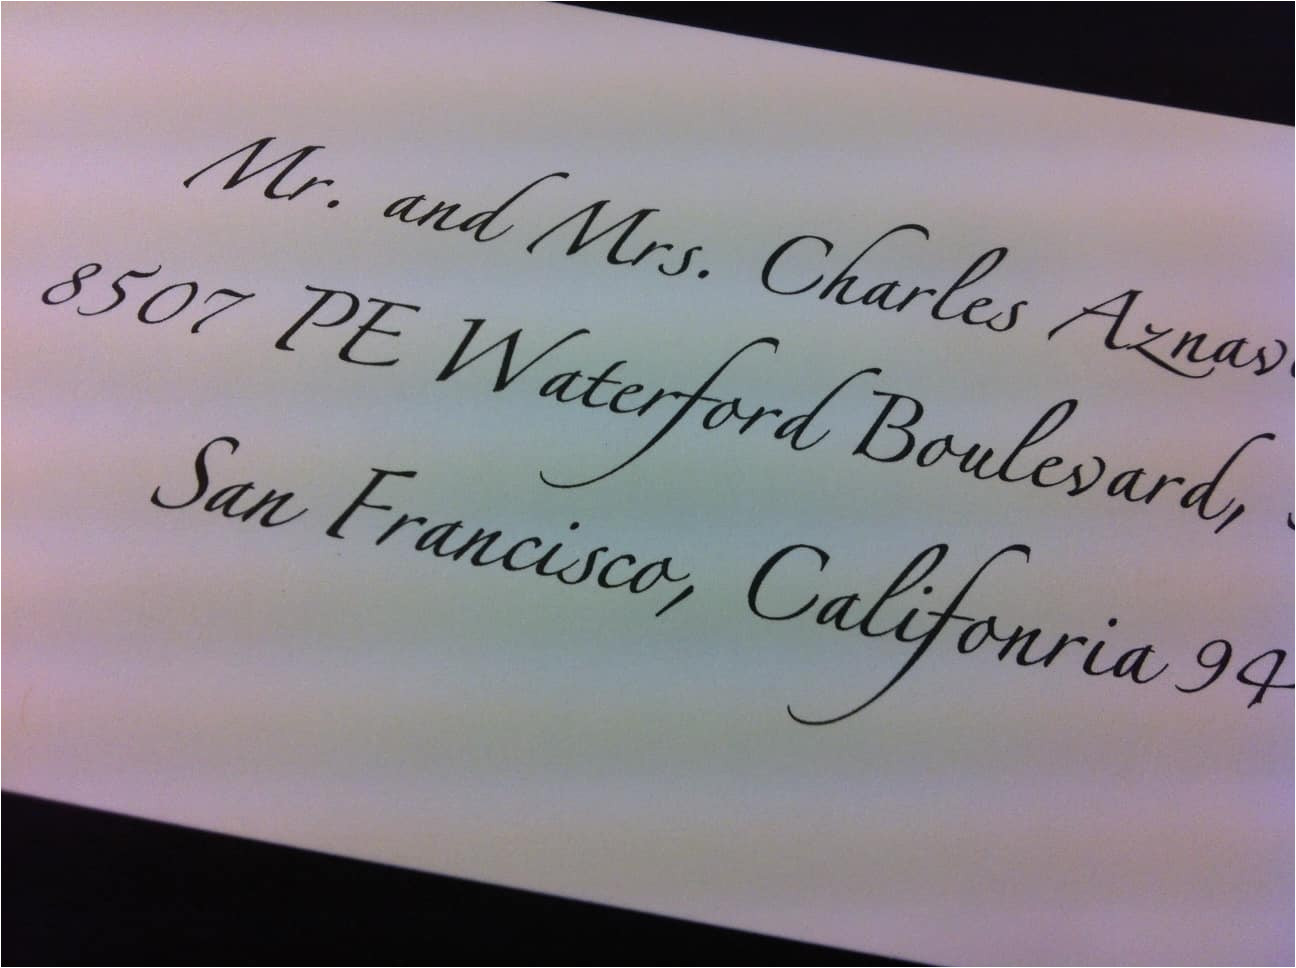 Mr. and Mrs. Charles Aznav
8507 PE Waterford Boulevard,
San Francisco, Califonria 94